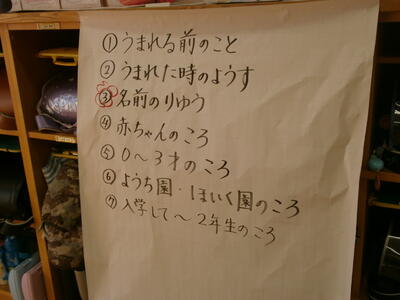 ①うまれる前のこと
②うまれた時のようす
③名前のりゆう
④赤ちゃんのころ
⑤0〜3才のころ
⑥ようち園・ほいく園のころ
⑦入学して〜2年生のころ